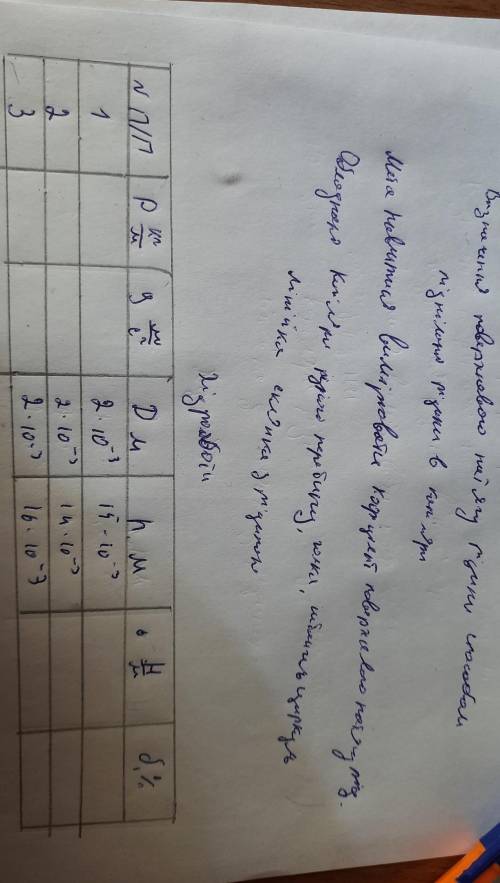 Визначення поверхневого натягу рідини способом
підняття рідини в капілярі
Мета навчитися вимірювати коефіцієнт поверхневого натягу рід.
Обладнання капіляри різного голка, штангенциркуль
лінійка склянка з рідиною
Хід роботи
N П/П ρ кг/м g м/с² D м h, м σ Н/м δ, %
1 2·10⁻³ 15·10⁻³
2 2·10⁻³ 14·10⁻³
3 2·10⁻³ 16·10⁻³